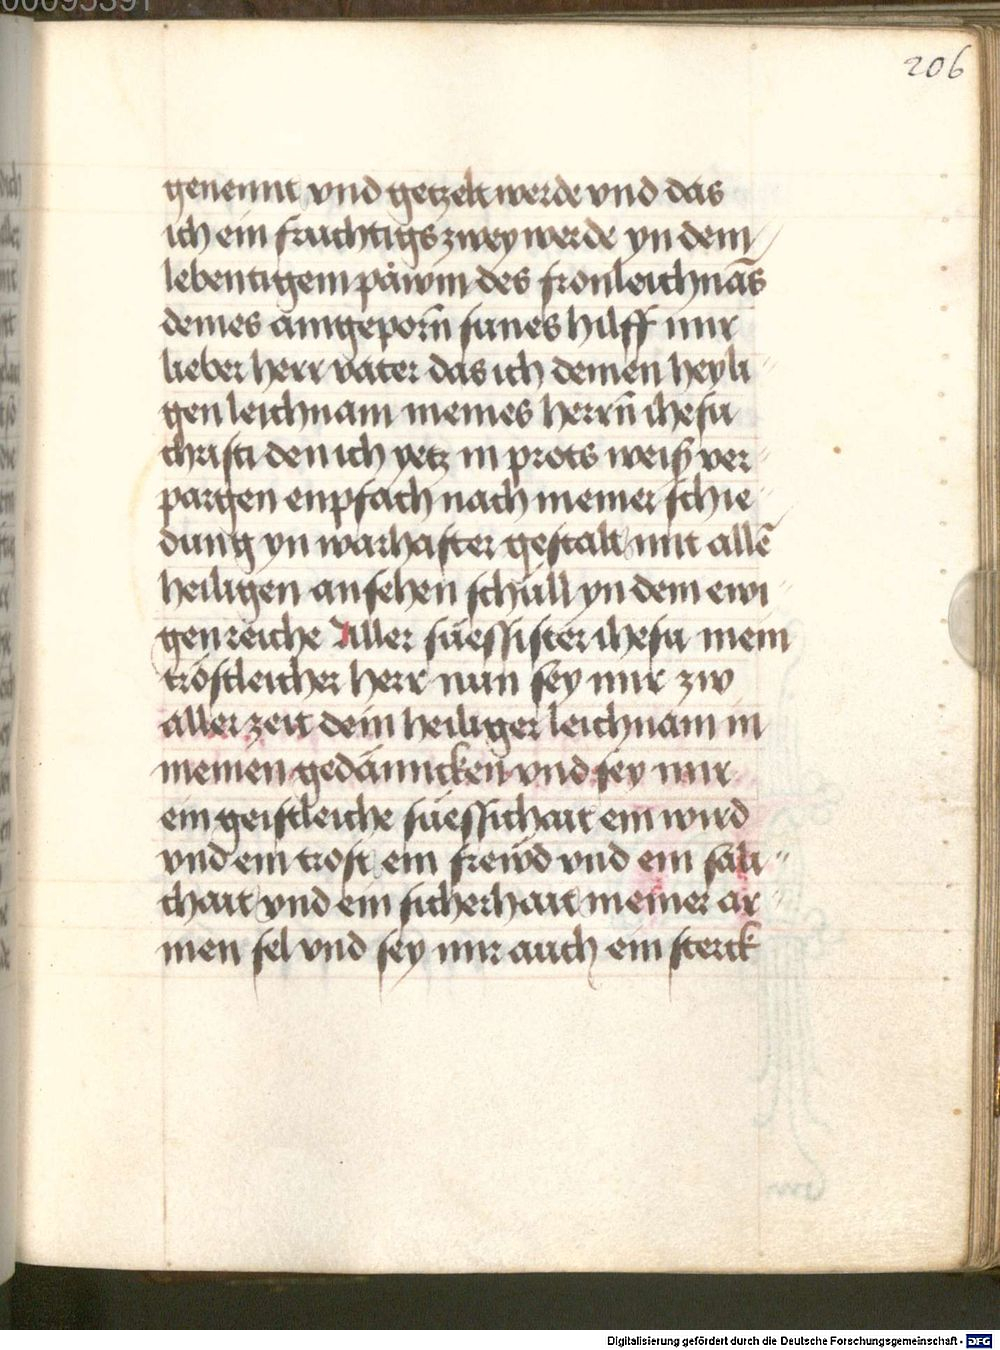 00095391
206
genennt vnd getzelt werde vnd das
ich ein fruchtigs zwey werde yn dem
lebentigem påwm des fronleichnās
deines aingeporn̄ sunes hilff mir
lieber herr vater das ich deinen heyli
gen leichnam meines herrn̄ ihesu
christi den ich yetz in prots weiß ver
pargen enpfach nach meiner schie
dung yn warhafter gestalt mit allē
heiligen ansehen schüll yn dem ewi
gen reiche Aller süessister ihesu mein
tröstleicher herr nun sey mir zw
aller zeit dein heiliger leichnam in
meinen gedänncken vnd sey mir
ein geistleiche süessichait ein wird
vnd ein trost ein frewd vnd ein säli
chait vnd ein sicherhait meiner ar
men sel vnd sey mir auch ein sterck
Digitalisierung gefördert durch die Deutsche Forschungsgemeinschaft - DFG